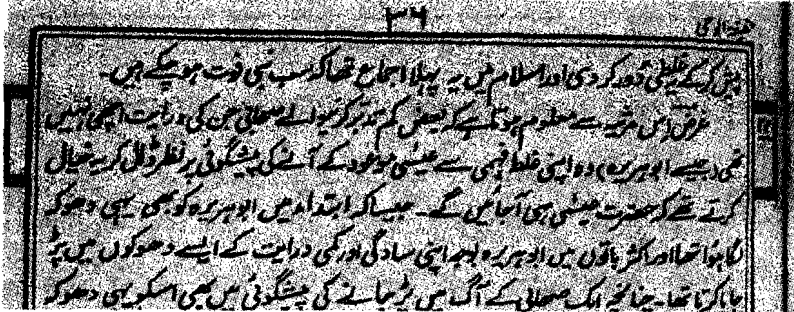 ۳۶
حقیقۃ الوحی
پیش کرکے یہ غلطی دور کر دی اور اسلام میں یہ پہلا اجماع تھا کہ سب نبی فوت ہو چکے ہیں۔
غرض اس مرثیہ سے معلوم ہوتا ہے کہ بعض کم تدبر کرنیوالے صحابی جن کی درایت اچھی نہیں
تھی (جیسے ابوہریرہ) وہ اپنی غلط فہمی سے عیسیٰ موعود کے آنے کی پیشگوئی پر نظر ڈال کر یہ خیال
کرتے تھے کہ حضرت عیسیٰ ہی آجائیں گے۔ جیسا کہ ابتداء میں ابوہریرہ کو بھی یہی دھوکہ
لگا ہوا تھا اور اکثر باتوں میں ابوہریرہ بوجہ اپنی سادگی اور کمی درایت کے ایسے دھوکوں میں پڑ
جایا کرتا تھا۔ چنانچہ ایک صحابی کے آگ میں پڑ جانے کی پیشگوئی میں بھی اسکو یہی دھوکہ